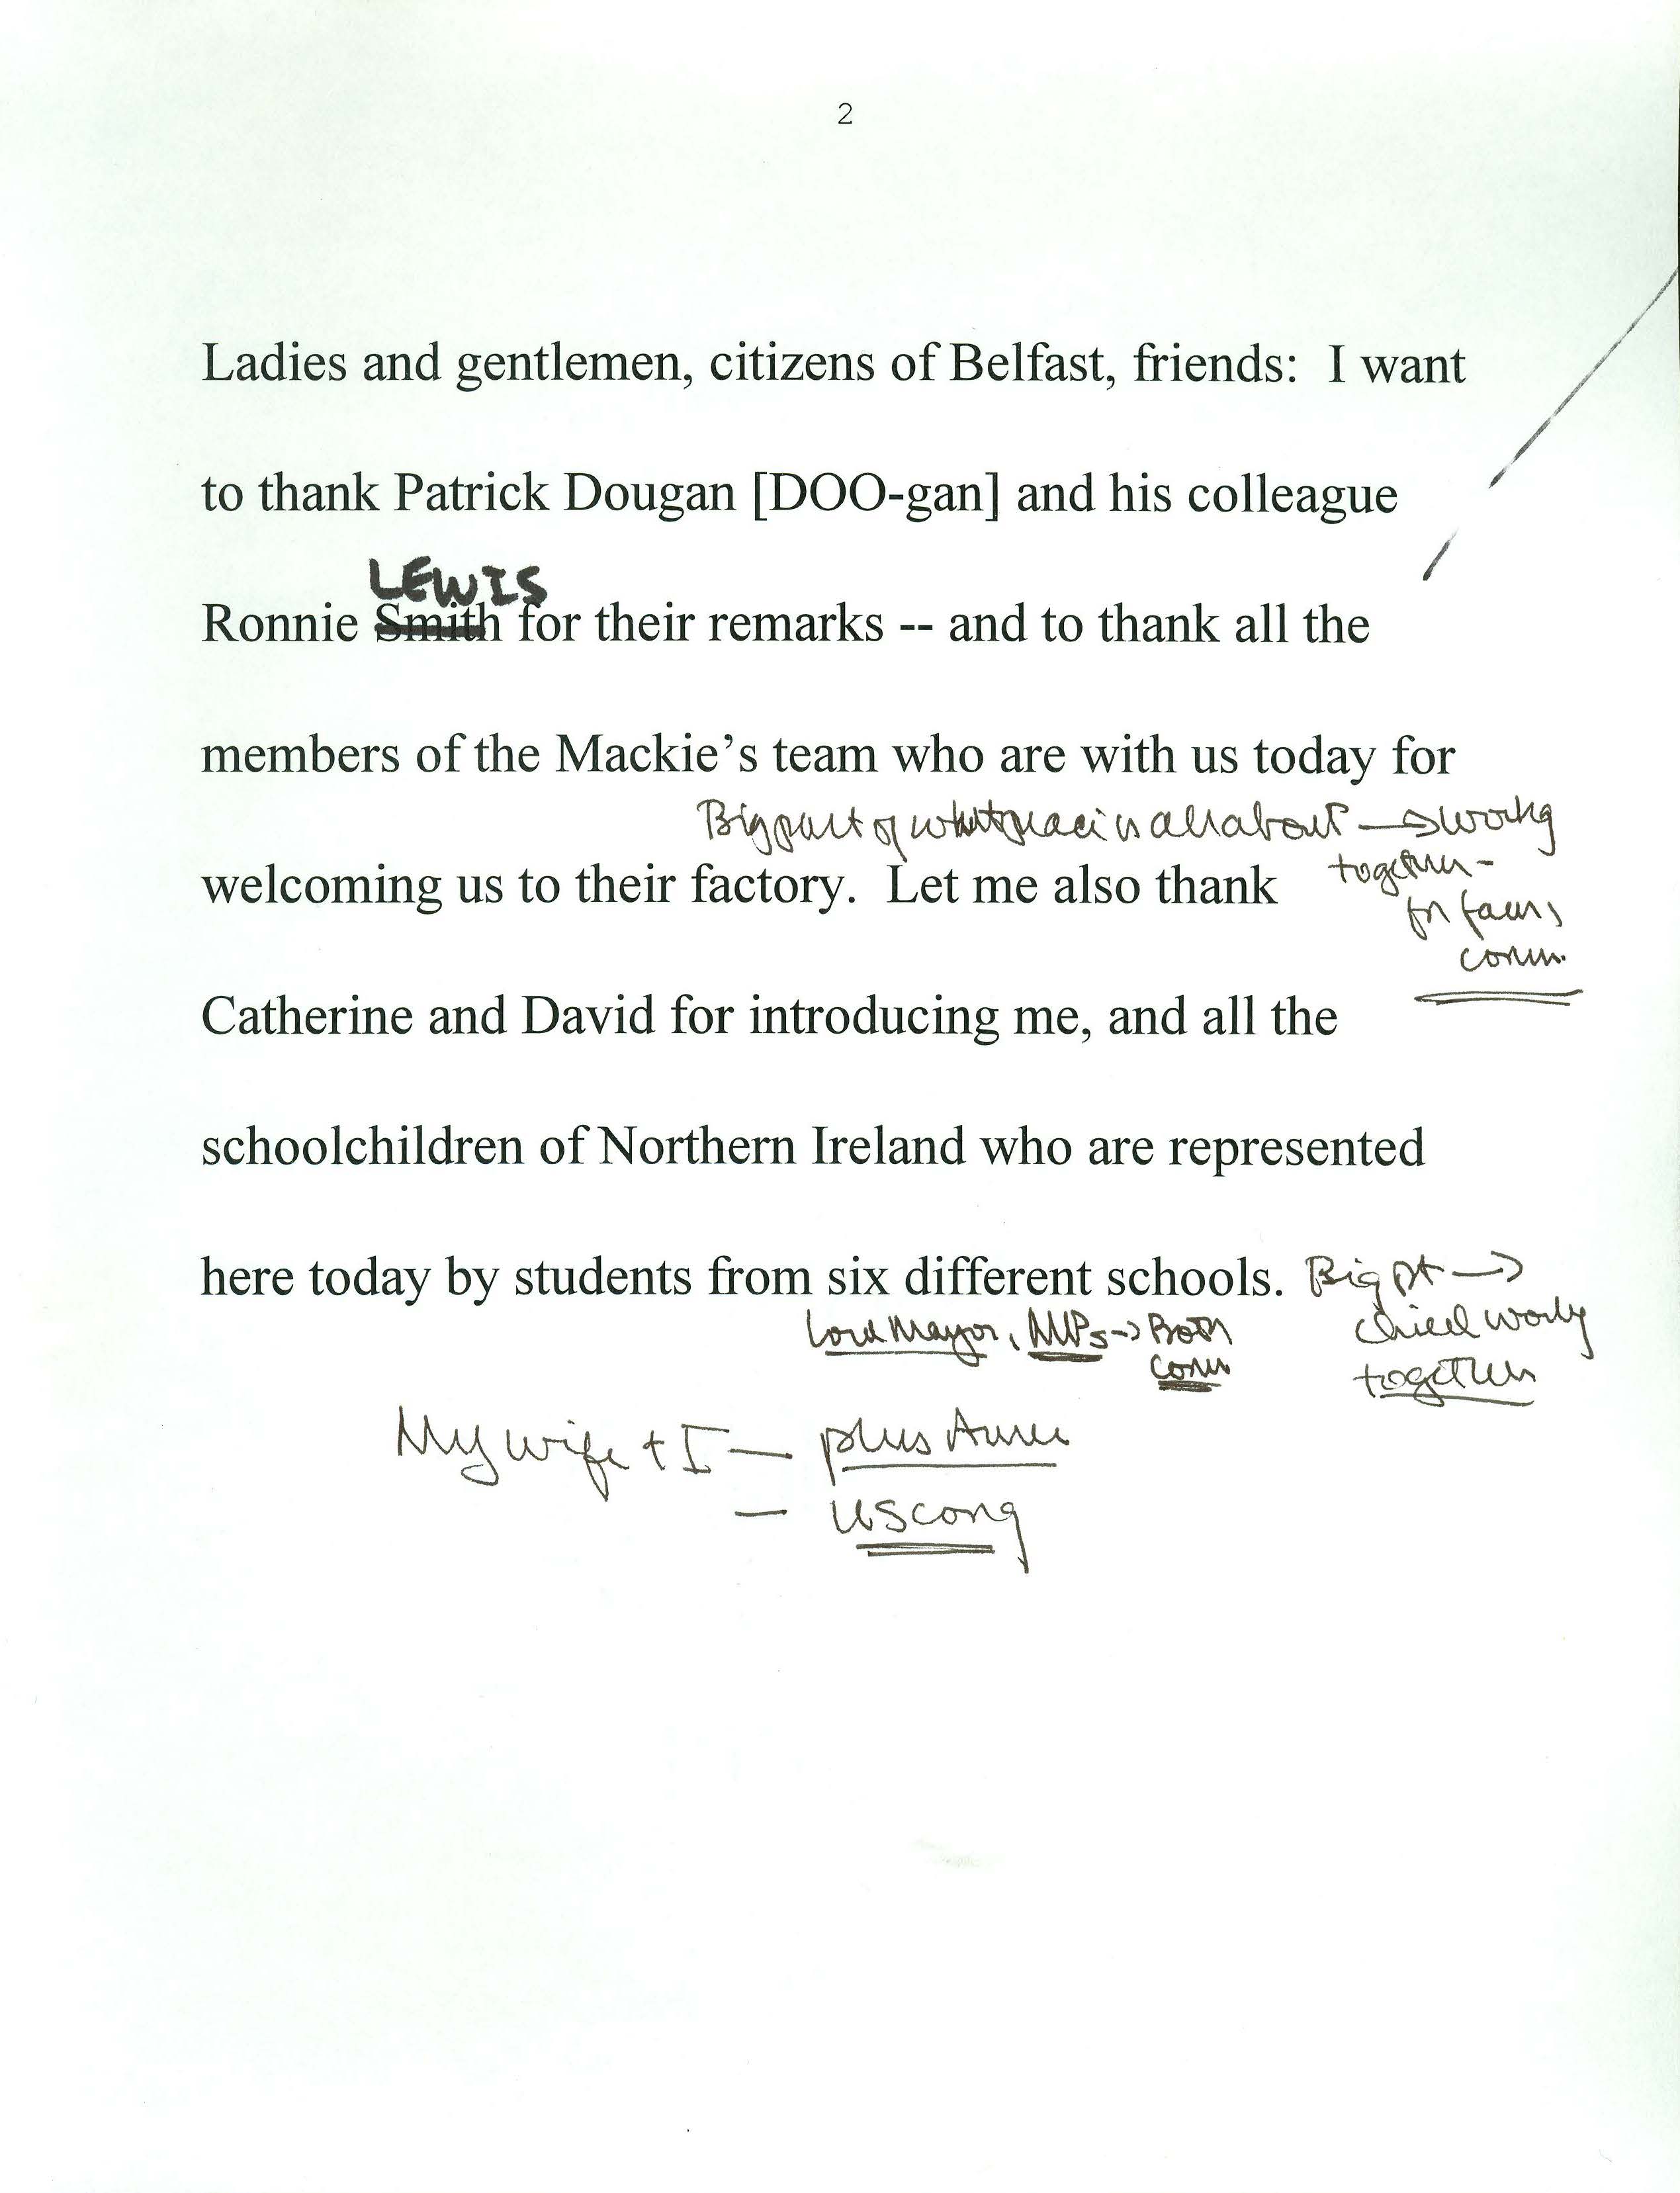 2
Ladies and gentlemen, citizens of Belfast, friends: I want
to thank Patrick Dougan [DOO-gan] and his colleague
LEWIS
Ronnie Smith for their remarks -- and to thank all the
members of the Mackie's team who are with us today for
Big part of what peace is all about → workg
welcoming us to their factory. Let me also thank
together -
for
comm.
Catherine and David for introducing me, and all the
schoolchildren of Northern Ireland who are represented
here today by students from six different schools. Big pt →
Lord Mayor, MPs → Both
comm
together
My wife + I —
plus
— US cong